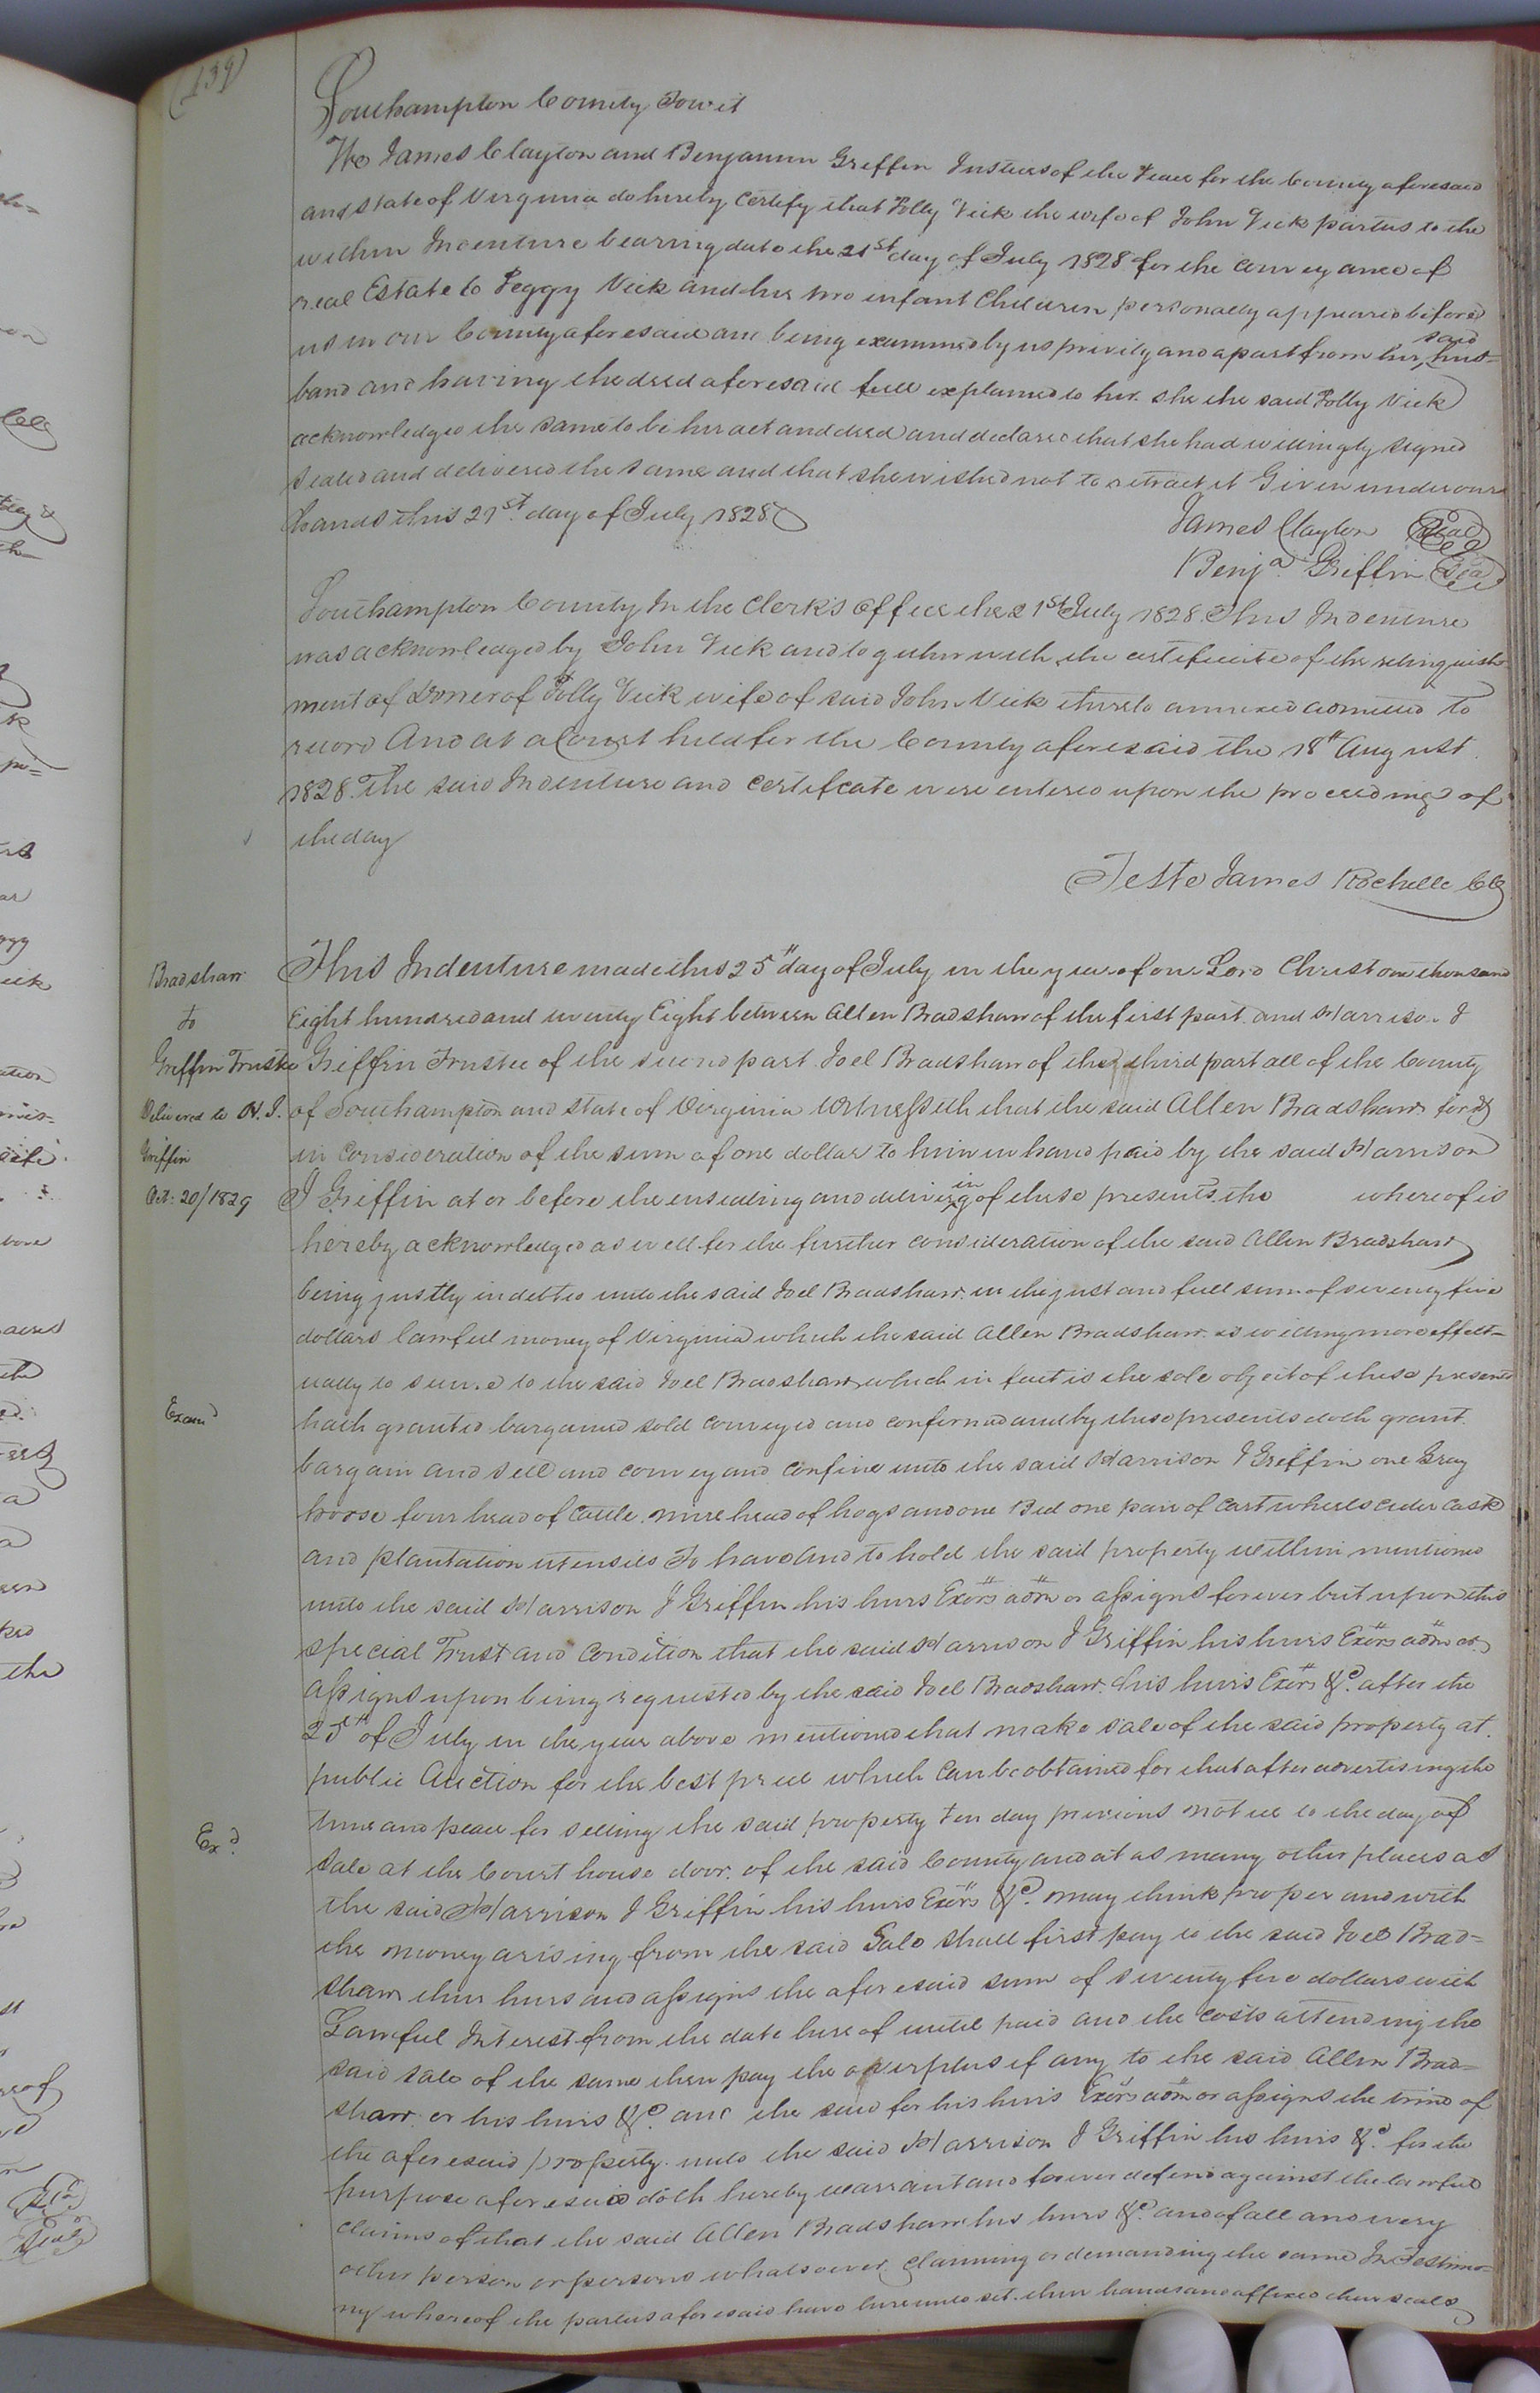 (139)
Southampton County Towit
We James Clayton and Benjamin Griffin Justices of the Peace for the County aforesaid
and state of Virginia do hereby Certify that Polly Vick the wife of John Vick parties to the
within Indenture bearing date the 21st day of July 1828 for the Conveyance of
real Estate to Peggy Vick and her two infant Children personally appeared before
us in our County aforesaid and being examined by us privily and apart from her said hus-
band and having the deed aforesaid full explained to her she the said Polly Vick
acknowledged the same to be her act and deed and declared that she had willingly signed
sealed and delivered the same and that she wished not to retract it Given under our
hands this 21st day of July 1828
James Clayton Seal
Benja. Griffin Seal
Southampton County In the Clerk's Office the 21st July 1828. This Indenture
was acknowledged by John Vick and together with the certificate of the relinquish
ment of Dower of Polly Vick wife of said John Vick thereto annexed admitted to
record And at a Court held for the County aforesaid the 18th August
1828. The said Indenture and Certifcate were entered upon the proceedings of
the day
Teste James Rochelle CC
Bradshaw
To
Griffin Trustee
Delivered to H. J.
Griffin
Oct: 20/1829
This Indenture made this 25th day of July in the year of our Lord Christ one thousand
Eight hundred and twenty Eight between Allen Bradshaw of the first part and Harrison J
Griffin Trustee of the second part Joel Bradshaw of the third part all of the County
of Southampton and State of Virginia Witnesseth that the said Allen Bradshaw for &
in Consideration of the sum of one dollar to him in hand paid by the said Harrison
J Griffin at or before the ensealing and delivering of these presents the whereof is
hereby acknowledged as well for the further consideration of the said Allen Bradshaw
being justly indebted unto the said Joel Bradshaw in the just and full sum of seventy five
dollars lawful money of Virginia which the said Allen Bradshaw is willing more effect-
ually to secure to the said Joel Bradshaw which in fact is the sole object of these presents
Examd
hath granted bargained sold conveyed and confirmed and by these presents doth grant
bargain and sell and convey and confirm unto the said Harrison J Griffin one Gray
horse four head of Cattle nine head of hogs and one Bed one pair of Cart wheels cider cask
and plantation utensils To have and to hold the said property within mentioned
unto the said Harrison J Griffin his heirs Exors adm or assigns forever but upon this
special Trust and Condition that the said Harrison J Griffin his heirs Exors adm or
assigns upon being requested by the said Joel Bradshaw his heirs Exors &c. after the
25th of July in the year above mentioned that make sale of the said property at
public Auction for the best price which Can be obtained for that after advertising the
time and place for selling the said property Ten day previous notice to the day of
Exd.
Sale at the Court house door of the said County and at as many other places as
the said Harrison J Griffin his heirs Exors &c. may think proper and with
the money arising from the said Sale shall first pay to the said Joel Brad-
shaw their heirs and assigns the aforesaid sum of seventy five dollars with
Lawful Interest from the date hereof until paid and the costs attending the
said sale of the same then pay the overplus if any to the said Allen Brad-
shaw or his heirs &c. and the said for his heirs Exors adm or assigns the of
the aforesaid property unto the said Harrison J Griffin his heirs &c. for the
purpose aforesaid doth hereby warrant and forever defend against the lawful
claims of that the said Allen Bradshaw his heirs &c. and of all and every
other person or persons whatsoever claiming or demanding the same In Testimo-
ny whereof the parties aforesaid have hereunto set their hands and affixed their seals